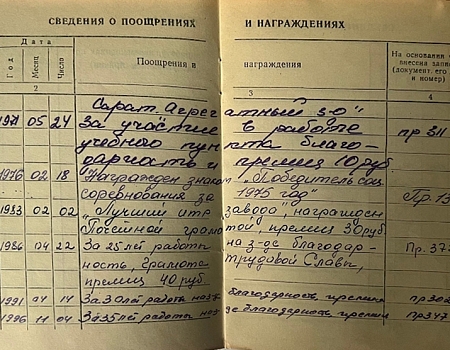 СВЕДЕНИЯ О ПООЩРЕНИЯХ И НАГРАЖДЕНИЯХ
Дата
Год Месяц Число
Поощрения и награждения
На основании
внесена запи
(документ, его
и номер)
2 3 4
Сарат. Агрегатный з-д"
1971 05 24 За участие в работе пр 311
учебного пункта благо-
дарность и премия 10 руб
1976 02 18 Награжден знаком „Победитель соц.
соревнования за 1975 год" Пр. 13
1983 02 02 „Лучший завода", награжден
Почетной грамотой, премия 30 руб
1986 04 22 За 25 лет работы на з-де благодар- Пр. 37
ность, грамота трудовой Славы,
премия 40 руб.
1991 04 14 За 30 лет работы благодарность, премия пр 302
1996 11 04 За 35 лет работы благодарность, премия пр 347